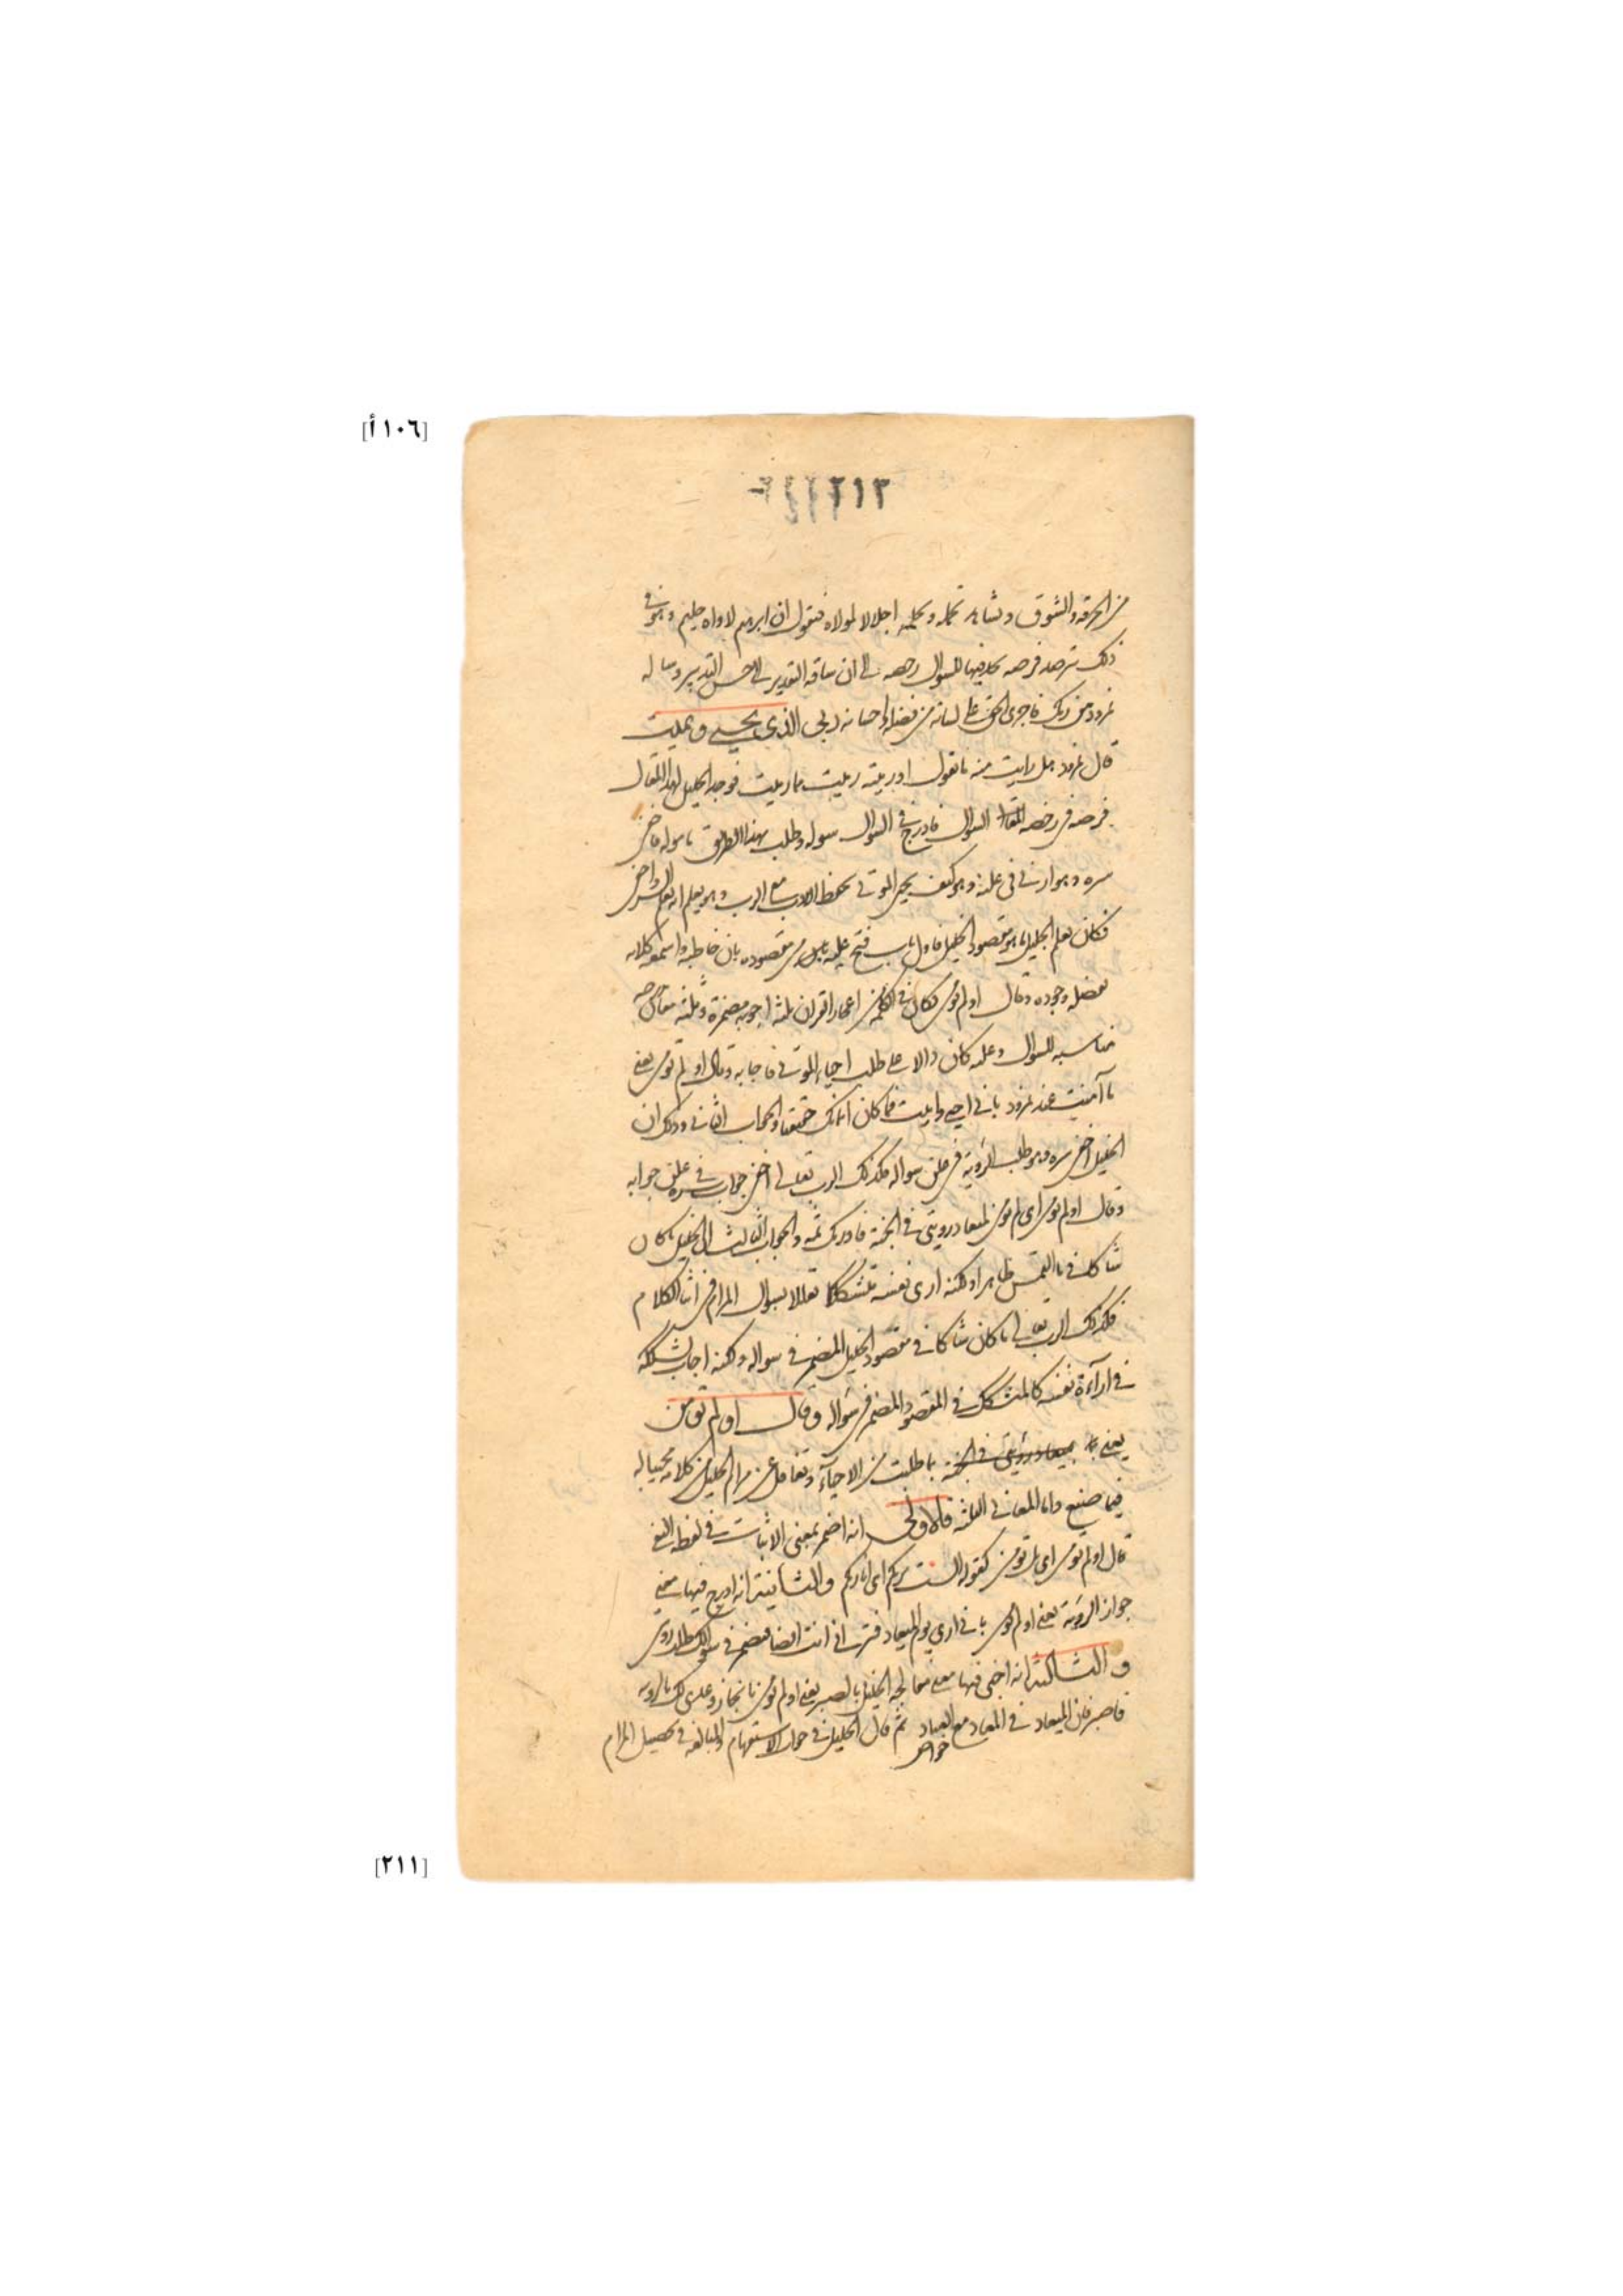 [١٠٦أ]
٢١٢
من الحرقة والشوق وتشاهد تحمله وتحلمه اجلالا لمولاه فتقول ان ابرهيم لاواه حليم وهو في
ذلك يترصد فرصة يجد فيها للسوال رخصة الى ان ساقه التقدير الى احسن التدبير وساله
نمرود من ربك فاجرى الحق على لسانه من فضله واحسانه ربي الذي يحيي ويميت
قال نمرود هل رايت منه ما تقول
فوجد الخليل لهذا المقال
فرصة في رخصة السوال فادرج في السوال سوله وطلب بهذا الطريق مأموله فاخفى
سره وهو ارني في علنه وهو كيف يحيى الموتى بحفظ الادب مع الرب وهو يعلم انه يعلم السر واخفى
فكان يعلم الجليل ما هو مقصود الخليل فاول باب فتح عليه من مقصوده بان خاطبه واسمعه كلامه
بفضله وجوده وقال اولم تؤمن فكان في الكلمة من اعجاز القرآن ثلثة اجوبة مضمرة وثلثة معان
مناسبة للسوال وعلنه كان دالا على طلب احياء الموتى فاجابه وقال اولم تؤمن يعني
ما آمنت عند نمرود باني احيي واميت فما كان ايمانك حقيقيا والجواب الثاني وذلك ان
الخليل اخفى سره وهو طلب الرؤية في علن سواله فكذلك الرب تعالى اخفى جواب سره في علن جوابه
وقال اولم تؤمن اى اولم تؤمن لميعاد رؤيتي في الجنة فادرك ثمه والجواب الثالث ان الخليل ما كان
شاكا في ما التمس ظاهرا ولكنه ارى نفسه متشككا تعللا بسوال المرام في اثناء الكلام
فكذلك الرب تعالى ما كان شاكا في مقصود الخليل المضمر في سواله ولكنه اجاب لتشككه
في اراءة نفسه كالمتشكك في المقصود المضمر في سؤاله وقال اولم تؤمن
يعني بما طلبت من الاحياء وتغافل عن مرام الخليل من كلامه مجيبا له
فيما صنع واما المعاني الثلثة فالاولى انه اضمر بمعنى الاثبات في لفظه النفي
قال اولم تؤمن اى بل تؤمن كقوله الست بربكم اى انا ربكم والثانية انه ادرج فيها معنى
جواز الرؤية يعني اولم تؤمن باني ارى يوم الميعاد فترانى انت ايضا فتضمر في سوالك طلب رؤيتي
والثالثة انه اخفى فيها معنى معالجة الخليل بالصبر يعني اولم تؤمن بانجاز وعدى لك بالرؤية
فاصبر فان الميعاد في المعاد مع العباد ثم قال الخليل في جواب الاستفهام والمبالغة في تحصيل المرام
[٢١١]